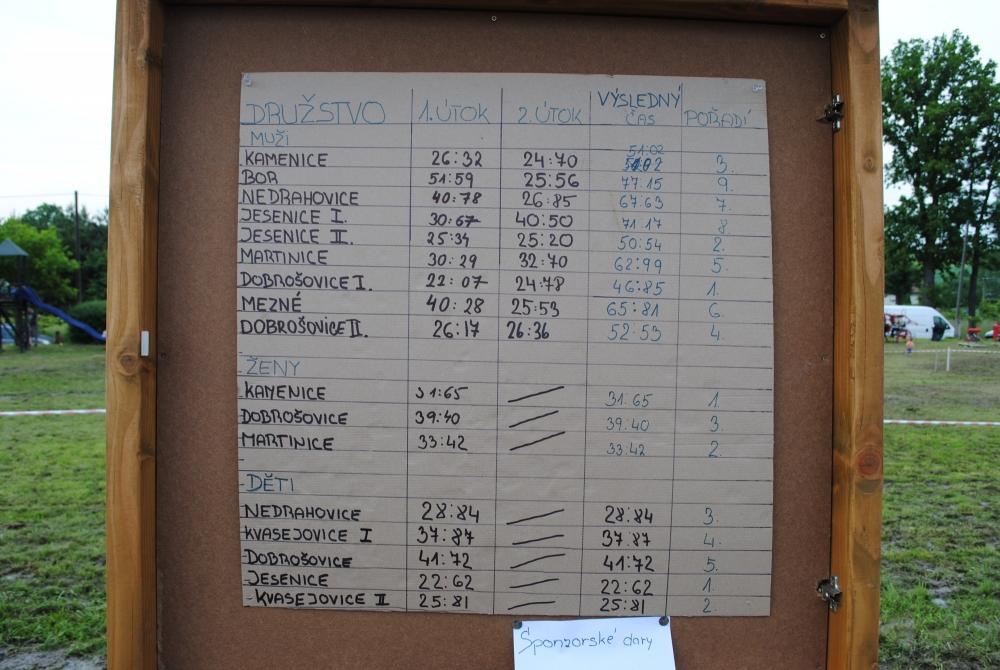 DRUŽSTVO 1. ÚTOK 2. ÚTOK VÝSLEDNÝ ČAS POŘADÍ
MUŽI
KAMENICE 26:32 24:70 51:02 3.
BOR 51:59 25:56 77:15 9.
NEDRAHOVICE 40:78 26:85 67:63 7.
JESENICE I. 30:67 40:50 71:17 8.
JESENICE II. 25:34 25:20 50:54 2.
MARTINICE 30:29 32:70 62:99 5.
DOBROŠOVICE I. 22:07 24:78 46:85 1.
MEZNÉ 40:28 25:53 65:81 6.
DOBROŠOVICE II. 26:17 26:36 52:53 4.
ŽENY
KAMENICE 31:65 31:65 1.
DOBROŠOVICE 39:40 39:40 3.
MARTINICE 33:42 33:42 2.
- DĚTI
NEDRAHOVICE 28:84 28:84 3.
KVASEJOVICE I 37:87 37:87 4.
DOBROŠOVICE 41:72 41:72 5.
- JESENICE 22:62 22:62 1.
- KVASEJOVICE II 25:81 25:81 2.
Sponzorské dary